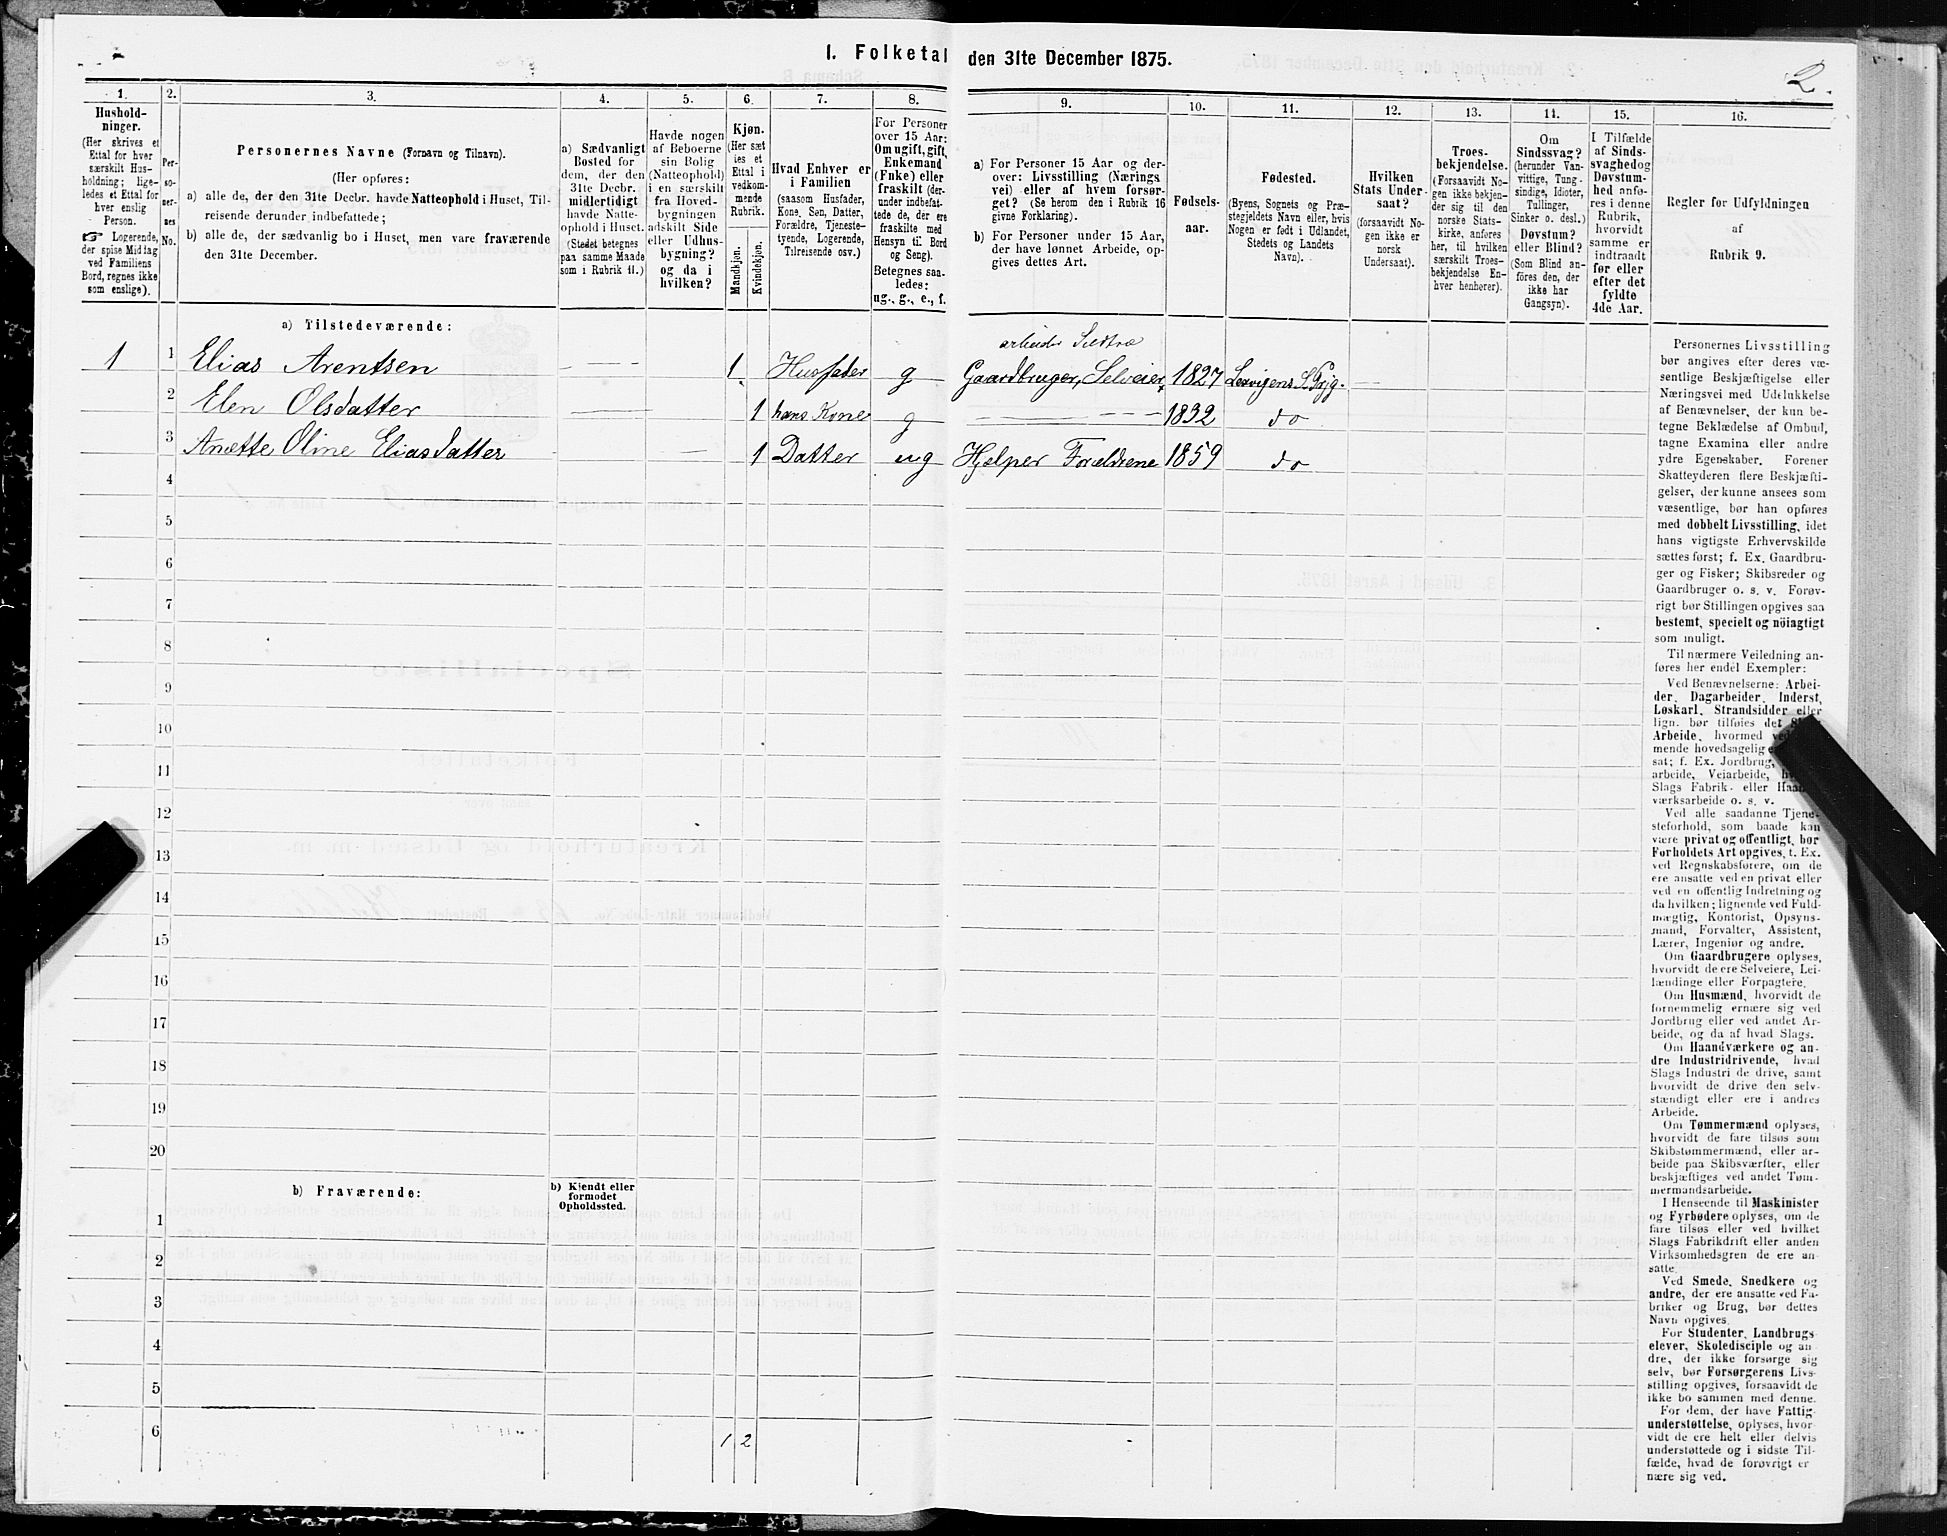 I. Folketal den 31te December 1875.
2.
1.
Hushold-
ninger.
(Her skrives et
Ettal for hver
særskilt Hus-
holdning; lige-
ledes et Ettal for
hver enslig
Person.
☞ Logerende,
der spise Middag
ved Familiens
Bord, regnes ikke
som enslige).
2.
Per-
so-
ner-
nes
No.
3.
Personernes Navne (Fornavn og Tilnavn).
(Her opføres:
a) alle de, der den 31te Decbr. havde Natteophold i Huset, Til-
reisende derunder indbefattede;
b) alle de, der sædvanlig bo i Huset, men vare fraværende
den 31te December.
4.
a) Sædvanligt
Bosted for
dem, der den
31te Decbr.
midlertidigt
havde Natte-
ophold i Huset.
(Stedet betegnes
paa samme Maade
som i Rubrik 11.)
5.
Havde nogen
af Beboerne
sin Bolig
(Natteophold)
i en særskilt
fra Hoved-
bygningen
adskilt Side
eller Udhus-
bygning?
og da i
hvilken?
6.
Kjøn.
(Her sæt
ies et
Ettal i
vedkom-
mende
Rubrik.
Mandkjøn.
Kvindekjøn.
7.
Hvad Enhver er
i Familien
(saasom Husfader,
Kone, Søn, Datter,
Forældre, Tjeneste-
tyende, Logerende,
Tilreisende osv.)
8.
For Personer
over 15 Aar:
Om ugift, gift,
Enkemand
(Enke) eller
fraskilt (der-
under indbefat-
tede de, der ere
fraskilte med
Hensyn til Bord
og Seng).
Betegnes saa-
ledes:
ug., g., e., f.
9.
a) For Personer 15 Aar og der-
over: Livsstilling (Nærings
vei) eller af hvem forsør-
get? (Se herom den i Rubrik 16
givne Forklaring).
b) For Personer under 15 Aar,
der have lønnet Arbeide, op-
gives dettes Art.
10.
Fødsels-
aar.
11.
Fødested.
(Byens, Sognets og Præ-
stegjeldets Navn eller, hvis
Nogen er født i Udlandet,
Stedets og Landets
Navn).
12.
Hvilken
Stats Under-
saat?
(forsaavidt No-
gen ikke er
norsk
Undersaat).
13.
Troes-
bekjendelse.
(Forsaavidt No-
gen ikke bekjen-
der sig til den
norske Stats-
kirke, anføres
her, til hvilken
særskilt Troes-
bekjendelse En-
hver henhører).
14.
Om
Sindssvag?
(herunder Van-
vittige, Tung-
sindige, Idioter,
Tullinger,
Sinker o. desl.)
Døvstum?
eller Blind?
(Som Blind an-
føres den, der
ikke har
Gangsyn).
15.
I Tilfælde
af Sinds-
svaghed og
Døvstum-
hed anfø-
res i denne
Rubrik,
hvorvidt
samme er
indtraadt
før eller
efter det
fyldte
4de Aar.
16.
Regler for Udfyldningen
af
Rubrik 9.
a) Tilstedeværende:
1 1 Elias Arentsen 1 Husfader g Gaardbruger, Selveier 1827
2 Elen Olsdatter 1 hans Kone g 1832 do
3 Anette Oline Eliasdatter 1 Datter ug Hjelper Forældrene 1859 do
4
5
6
7
8
9
10
11
12
13
14
15
16
17
18
19
20
b) Fraværende:
b) Kjendt eller
formodet
Opholdssted.
1
2
3
4
5
6
1 2
Personernes Livsstilling
bør angives efter deres væ-
sentlige Beskjæftigelse eller
Næringsvei med Udelukkelse
af Benævnelser, der kun be-
tegne Beklædelse af Ombud,
tagne Examina eller andre
ydre Egenskaber. Forener
Skatteyderen flere Beskjæfti-
gelser, der kunne ansees som
væsentlige, bør han opføres
med dobbelt Livsstilling, idet
hans vigtigste Erhvervskilde
sættes først; f. Ex. Gaardbru-
ger og Fisker; Skibsreder og
Gaardbruger o. s. v. Forøv-
rigt bør Stillingen opgives saa
bestemt, specielt og nöiagtigt
som muligt.
Til nærmere Veiledning an-
føres her endel Exempler:
Ved Benævnelserne: Arbei-
der, Dagarbeider, Inderst,
Løskarl, Strandsidder eller
lign. bør tilføies det
Arbeide, hvormed
mende hovedsagelig
sat; f. Ex. Jordbrug,
arbeide, Veiarbeide,
Slags Fabrik- eller
værksarbeide o. s. v.
Ved alle saadanne Tjene-
steforhold, som baade kan
være privat og offentligt, bør
Forholdets Art opgives, t. Ex.
ved Regnskabsførere, om de
ere ansatte ved en privat eller
ved en offentlig Indretning og
da hvilken; lignende ved Fuld-
mægtig, Kontorist, Opsyns-
mand, Forvalter, Assistent,
Lærer, Ingeniør og andre.
Om Gaardbrugere oplyses,
hvorvidt de ere Selveiere, Lei-
lændinge eller Forpagtere.
Om Husmænd, hvorvidt de
fornemmelig ernære sig ved
Jordbrug eller ved andet Ar-
beide, og da af hvad Slags.
Om Haandværkere og an-
dre Industridrivende, hvad
Slags Industri de drive, samt
hvorvidt de drive den selv-
stændigt eller ere i andres
Arbeide.
Om Tømmermænd oplyses,
hvorvidt de fare tilsøs som
Skibstømmermænd, eller ar-
beide paa Skibsværfter, eller
beskjæftiges ved andet Tøm-
mermandsarbeide.
I Henseende til Maskinister
og Fyrbødere oplyses, om de
fare tilsøs eller ved hvilket
Slags Fabrikdrift eller anden
Virksomhedsgren de ere an-
satte.
Ved Smede, Snedkere og
andre, der ere ansatte ved Fa-
briker og Brug, bør dettes
Navn opgives.
For Studenter, Landbrugs
elever, Skoledisciple og an
dre, der ikke forsørge sig
selv, bør Forsørgerens Livs-
stilling opgives, forsaavidt de
ikke bo sammen med denne.
For dem, der have Fattig-
understøttelse, oplyses, hvor-
vidt de ere helt eller delvis
understøttede og i sidste Til-
fælde, hvad de forøvrigt er
nære sig ved.